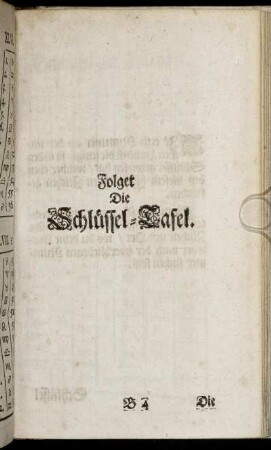 Folget
Die
Schlüssel-Tafel.
B 4 Die